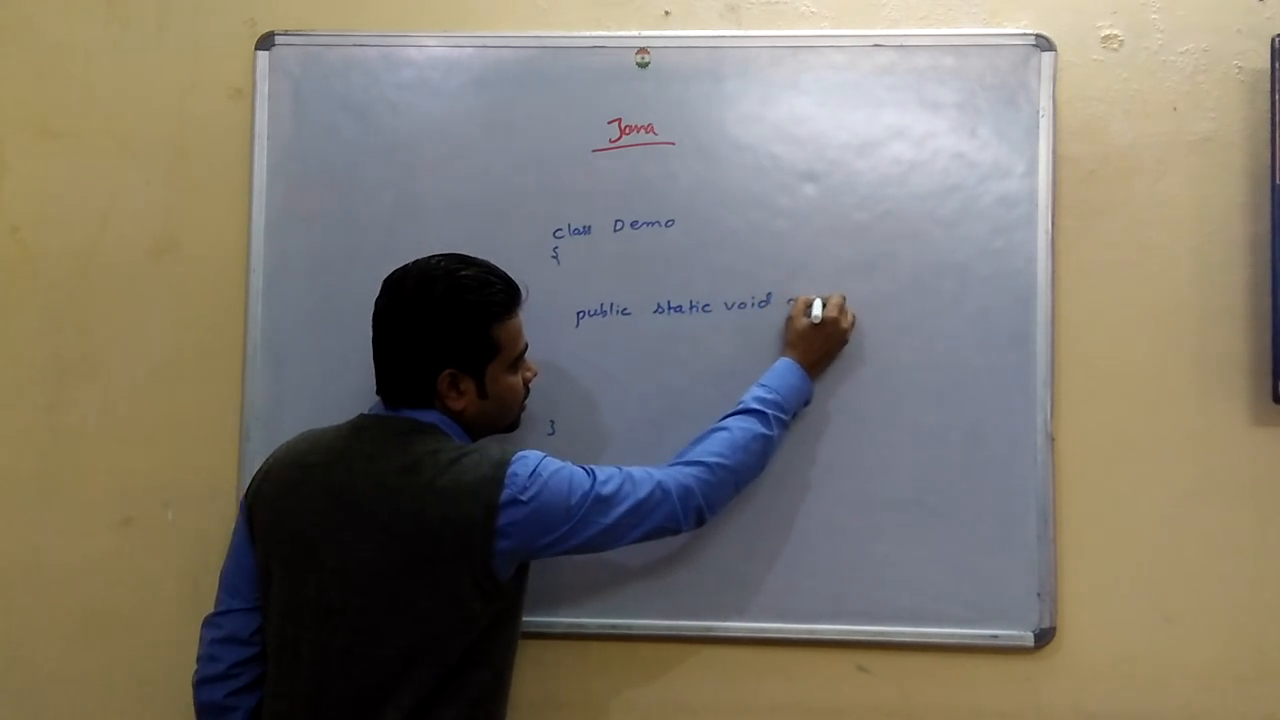 Java
class Demo
{
public static void
}